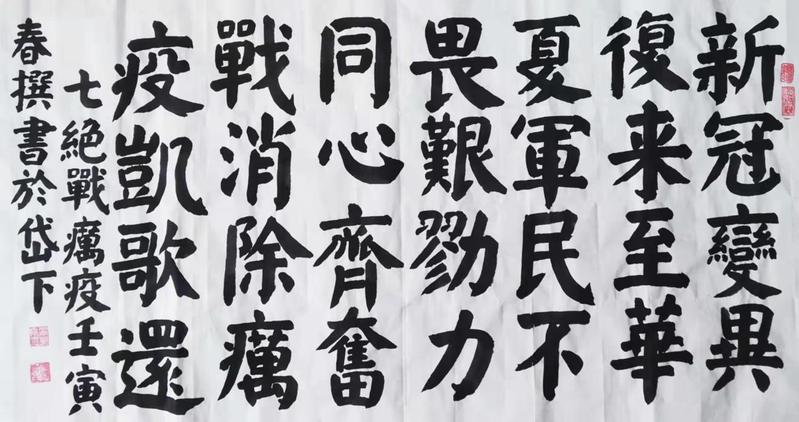 新冠變異
復来至華
夏軍民不
畏艱勠力
同心齊奮
戰消除癘
疫凱歌還
七絕戰癘疫壬寅
春撰書於岱下